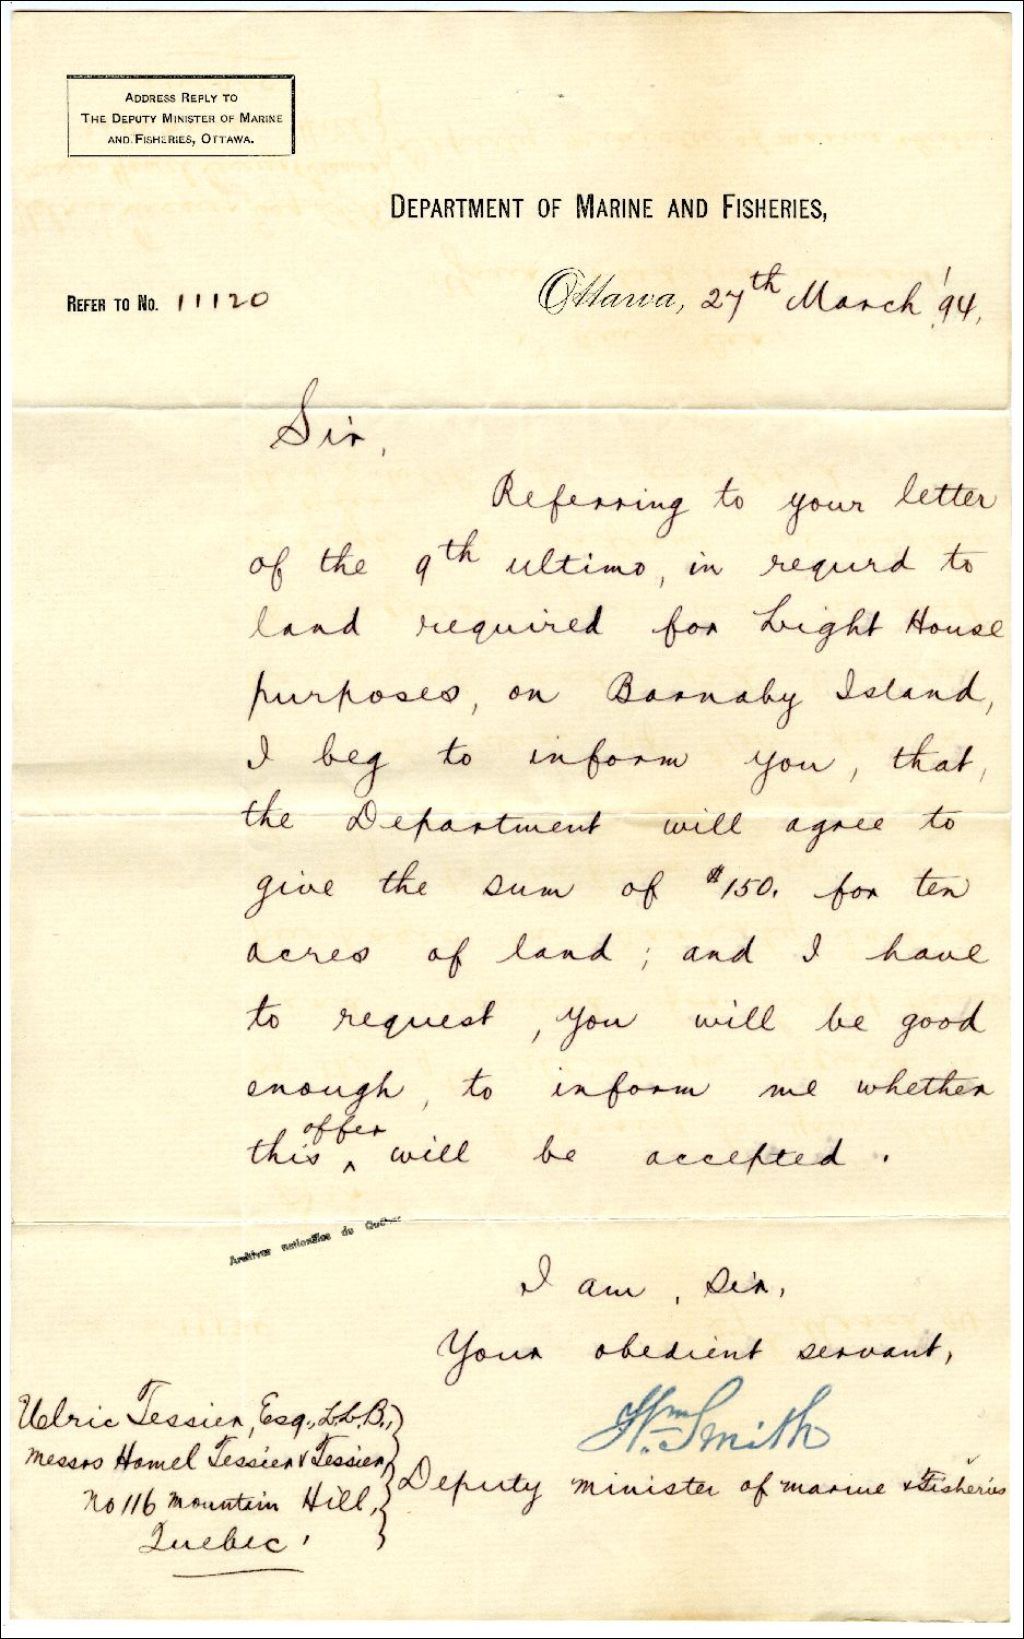 ADDRESS REPLY TO
THE DEPUTY MINISTER OF MARINE
AND FISHERIES, OTTAWA.
DEPARTMENT OF MARINE AND FISHERIES,
REFER TO NO. 11120
Ottawa, 27th March '94,
Sir,
Referring to your letter
of the 9th ultimo, in regurd to
land required for Light House
purposes, on Barnaby Island,
I beg to inform you, that,
the Department will agree to
give the sum of $150. for ten
acres of land; and I have
to request, you will be good
enough, to inform me whether
offer
this ^ will be accepted.
Archives nationales du Québec
I am, Sir,
Your obedient servant,
Wm. Smith
Deputy minister of marine & Fisheries
Ulric Tessier, Esq., L.L.B.,
Messrs Hamel Tessier & Tessier,
No 116 Mountain Hill,
Quebec.